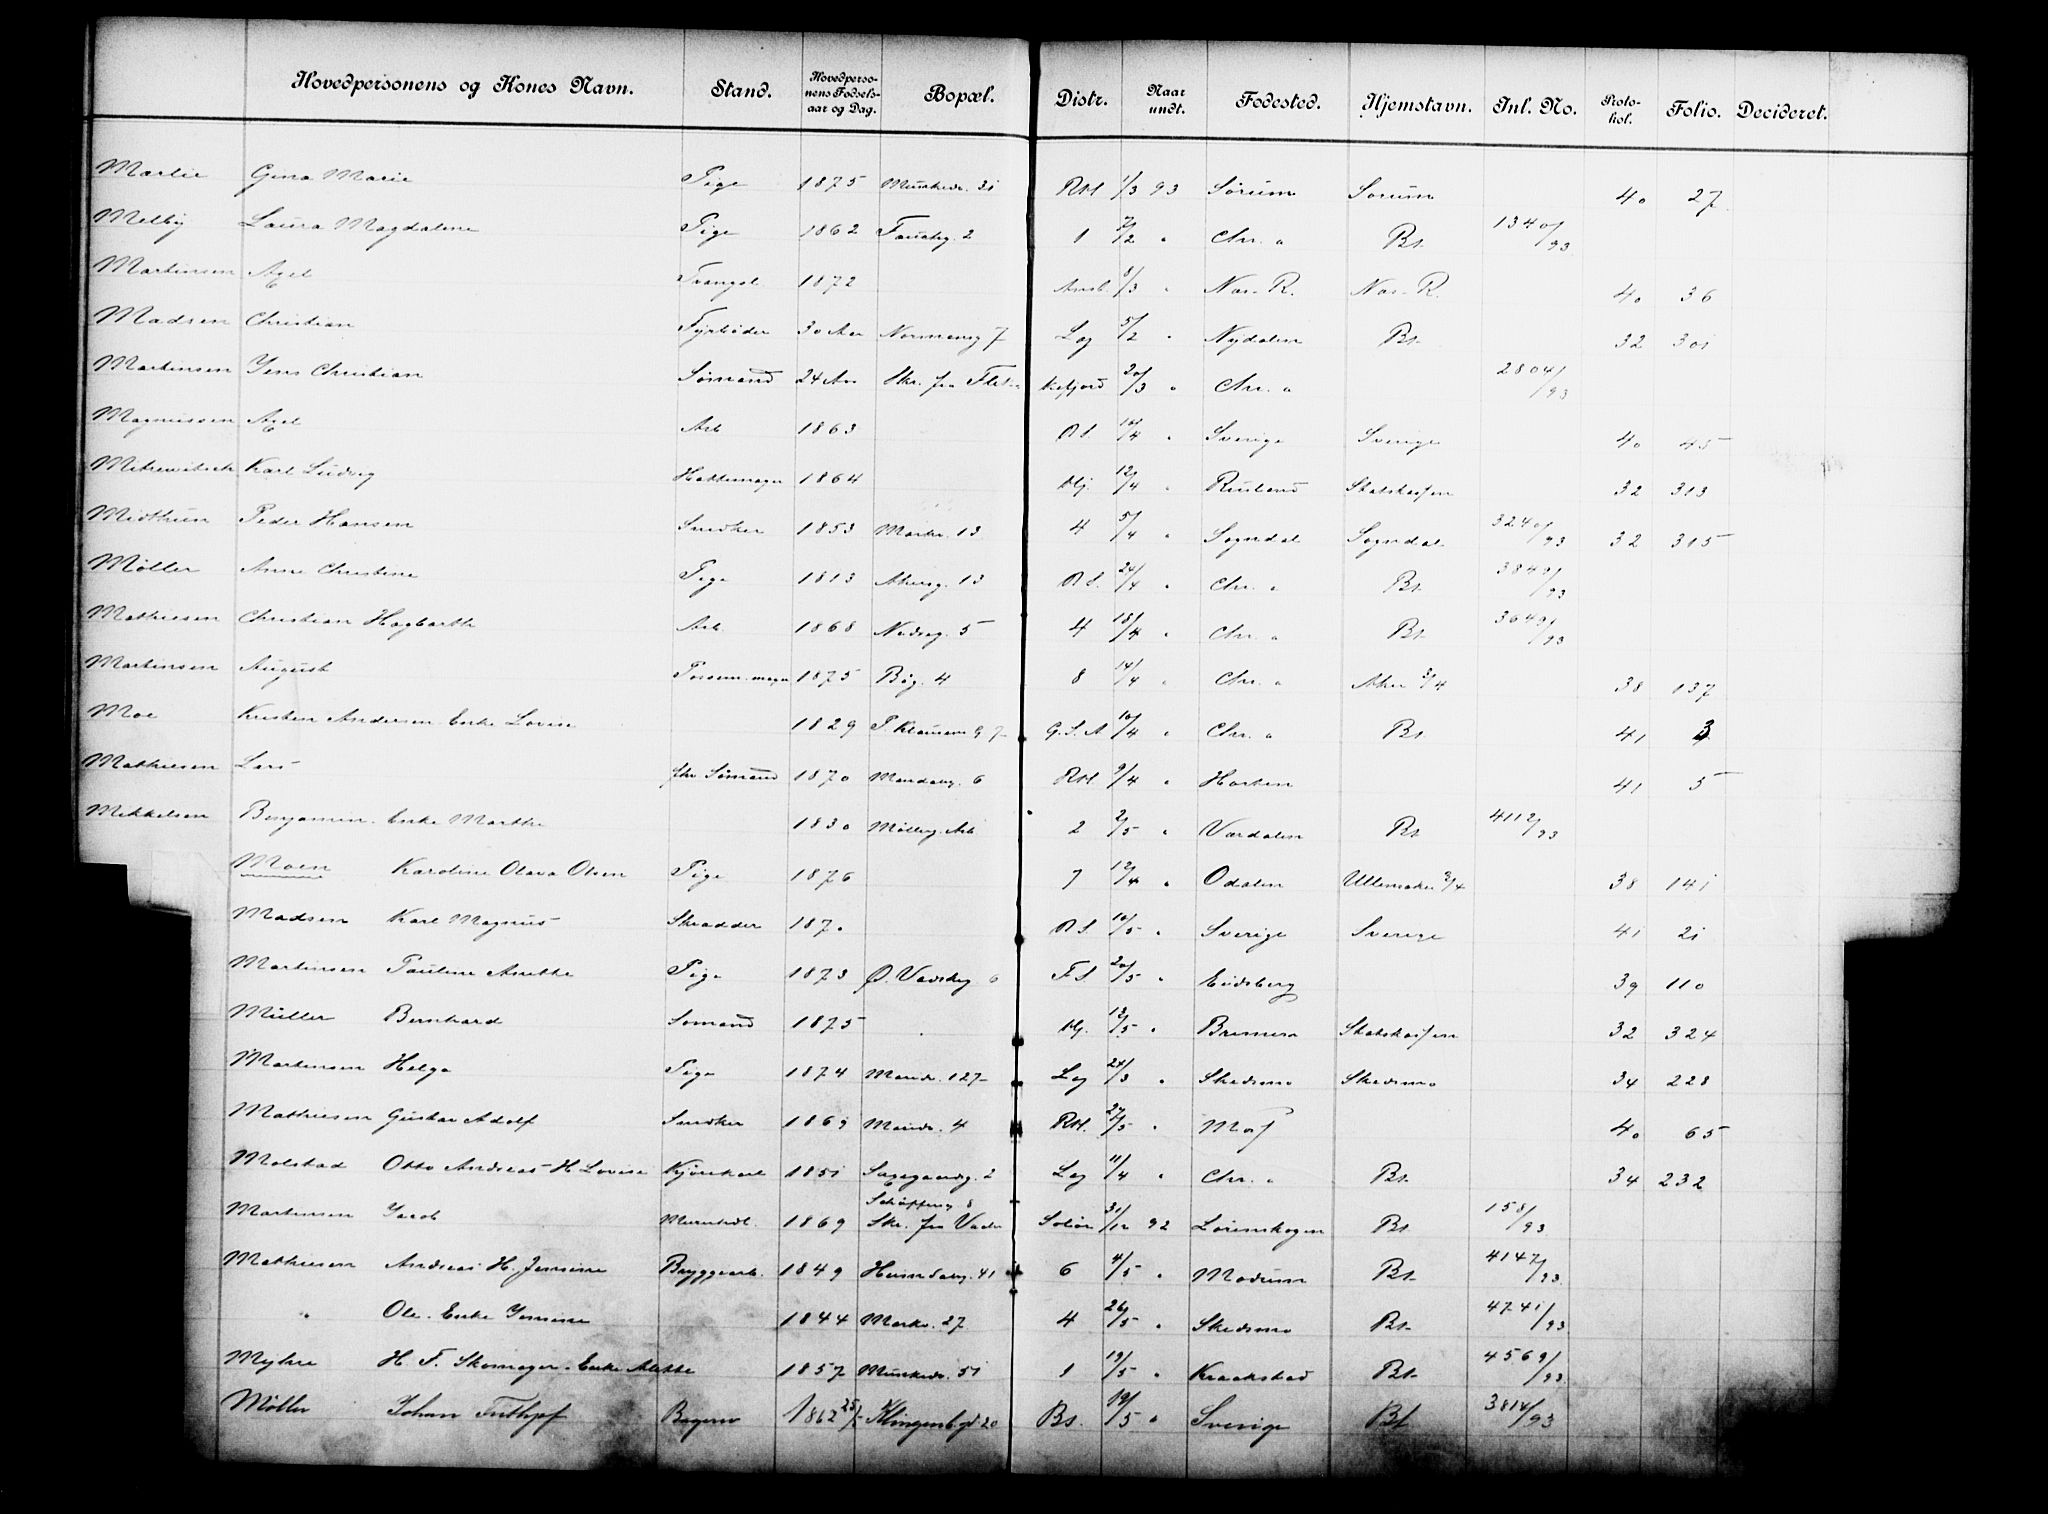 Hovedpersonens og Kones Navn. Stand. Hovedpersonens Fødselsaar og Dag. Bopæl. Distr. Naar undt. Fødested. Hjemstavn. Inl. No. Protokol. Folio. Decideret.
Marlie Gina Marie Pige 1875 Munkedr. 31 RH 1/3 93 Sørum Sørum 40 27
Melby Laura Magdalene Pige 1862 2 1 7/2 " Chr. a Bt. 1340/93
Martinsen Axel Trangsl. 1872 8/3 " Nas. R. Nas. R. 40 36
Madsen Christian Fyrbøder 30 Aar Normannsg 7 Lag 5/2 " Nydalen Bt. 32 301
Martinsen Jens Christian Sømand 24 Aar Skr. fra Kiefjord 20/3 " Chr. a 2804/93
Magnussen Axel Arb 1863 RS. 10/4 " Sverige Sverige 40 45
Karl Ludvig Hattemager 1864 Hj. 12/4 " Rusland Statskassen 32 313
Midthun Peder Hansen Snedker 1853 Markv. 13 4 5/4 " Sogndal Sogndal 3240/93 32 315
Møller Anne Christine Pige 1813 Akersg. 13 RS. 24/4 " Chr. a Bt. 3849/93
Mathiesen Christian Hagbarth Arb. 1868 Nedreg. 5 4 18/4 " Chr. a Bt. 3649/93
Martinsen August 1875 Bøg. 4 8 14/4 " Chr. a Aker 3/4 38 137
Moe Kristen Andersen Enke Lovise 1829 P. Klausens G 7 G.S.A 10/4 " Chr. a Bt. 41 3
Mathiesen Lars fhv Sømand 1870 6 RH. 9/4 " Horten 41 5
Mikkelsen Benjamin. Enke Marthe 1830 Mølleg. 2 2/5 " Værdalen Bt 4112/93
Moen Karoline Olava Olsen Pige 1876 7 12/4 " Odalen Ullensaker 3/4 38 141
Madsen Karl Magnus Skrædder 1870 RS. 10/5 " Sverige Sverige 41 21
Martinsen Pauline Anethe Pige 1873 Ø. Vadskg 6 FS. 20/5 " Eidsberg 39 110
Müller Bernhard Sømand 1875 Hj. 12/5 " Bremen Statskassen 32 324
Martinsen Helga Pige 1874 127 Lag 24/3 " Skedsmo Skedsmo 34 228
Mathiesen Gustav Adolf Snedker 1869 4 RH. 27/5 " Moss 40 65
Molstad Otto Andreas H Lovise Kjørekarl 1851 Sagegaardsg. 2 Lag 11/4 " Chr. a Bt. 34 232
Martinsen Jacob 1869 Schøfferg 8 Skr. fra Solør 31/12 92 Lørenskogen Bt 158/93
Mathiesen Andreas H. Jensine Bryggearb. 1849 Heimdalsg. 41 6 4/5 " Modum Bt. 4147/93
" Ole. Enke Jensine 1844 Markv. 27 4 26/5 " Skedsmo Bt. 4741/93
Myhre H. F. Skomager. Enke 1857 Munkedr. 51 1 19/5 " Kraakstad Bt. 4569/93
Møller Johan Bager 1862 25/5 Klingenb.gd 20 Bs. 19/5 " Sverige Bt 3814/93